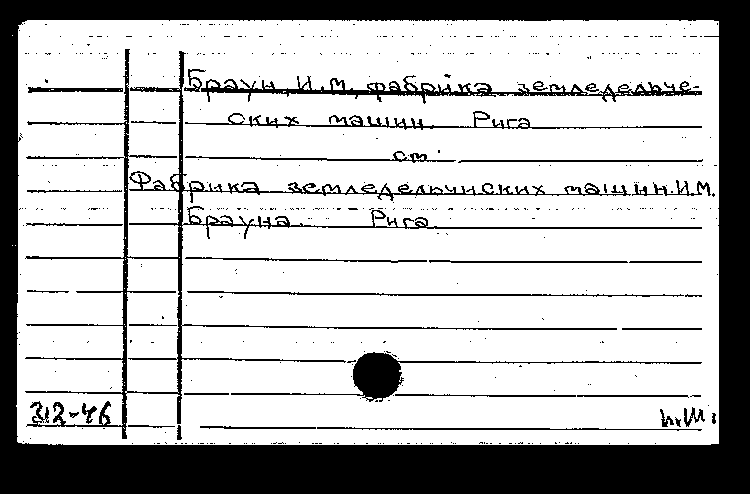 Браун, И.М, фабрика земледельче-
ских машин. Рига
см.
Фабрика земледельчиских машин И.М.
Брауна. Рига.
312-46